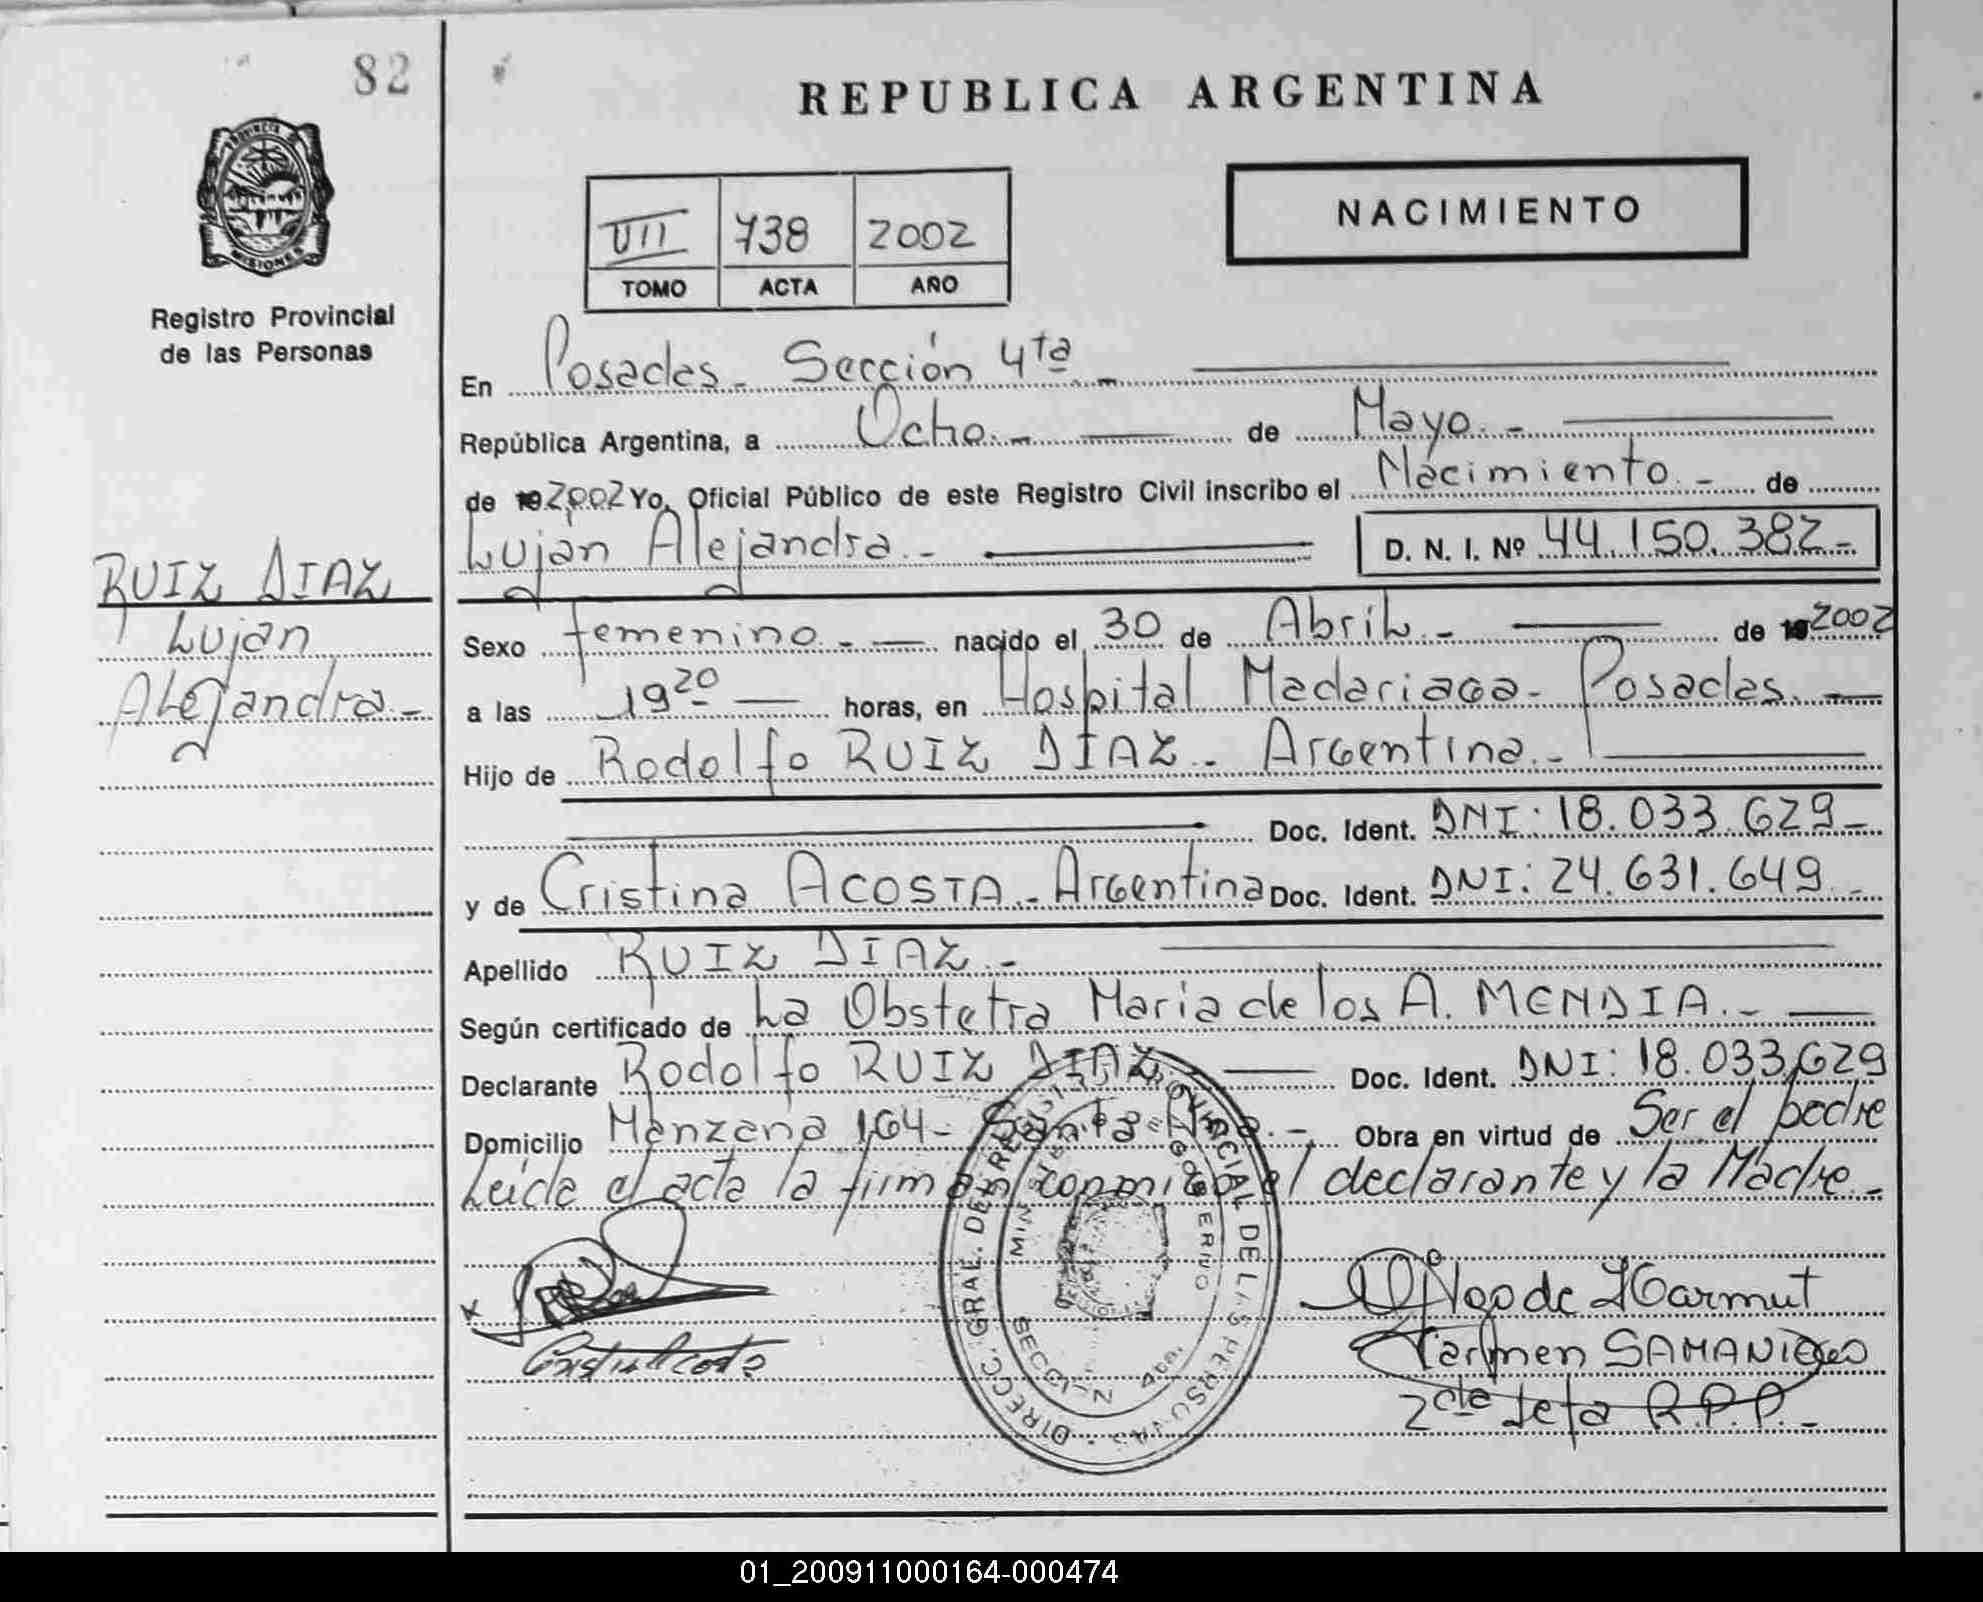 82
REPUBLICA ARGENTINA
PROVINCIA DE
MISIONES
Registro Provincial
de las Personas
VII 738 2002
TOMO ACTA AÑO
NACIMIENTO
En Posadas - Sección 4ta -
República Argentina, a Ocho.- de Mayo.-
de 19 2002 Yo, Oficial Público de este Registro Civil inscribo el Nacimiento.- de
Lujan Alejandra.- D. N. I. Nº 44.150.382-
RUIZ DIAZ
Lujan
Alejandra.-
Sexo femenino.- nacido el 30 de Abril.- de 19 2002
a las 19 20 horas, en Hospital Madariaga- Posadas.-
Hijo de Rodolfo RUIZ DIAZ.- Argentina.-
Doc. Ident. DNI: 18.033.629-
y de Cristina ACOSTA.- Argentina Doc. Ident. DNI: 24.631.649.-
Apellido RUIZ DIAZ.-
Según certificado de La Obstetra Maria de los A. MENDIA.-
Declarante Rodolfo RUIZ DIAZ Doc. Ident. DNI: 18.033.629
Domicilio Manzana 164- Santa Ana.-, Obra en virtud de Ser el padre
Leida el acta la firman conmigo el declarante y la Madre.-
DIRECC. GRAL. DEL REGISTRO PROVINCIAL DE LAS PERSONAS
SECCION 4ta.
Cristina Acosta
de Harmut
Carmen SAMANIEGO
2da Jefa R.P.P.-
01_200911000164-000474